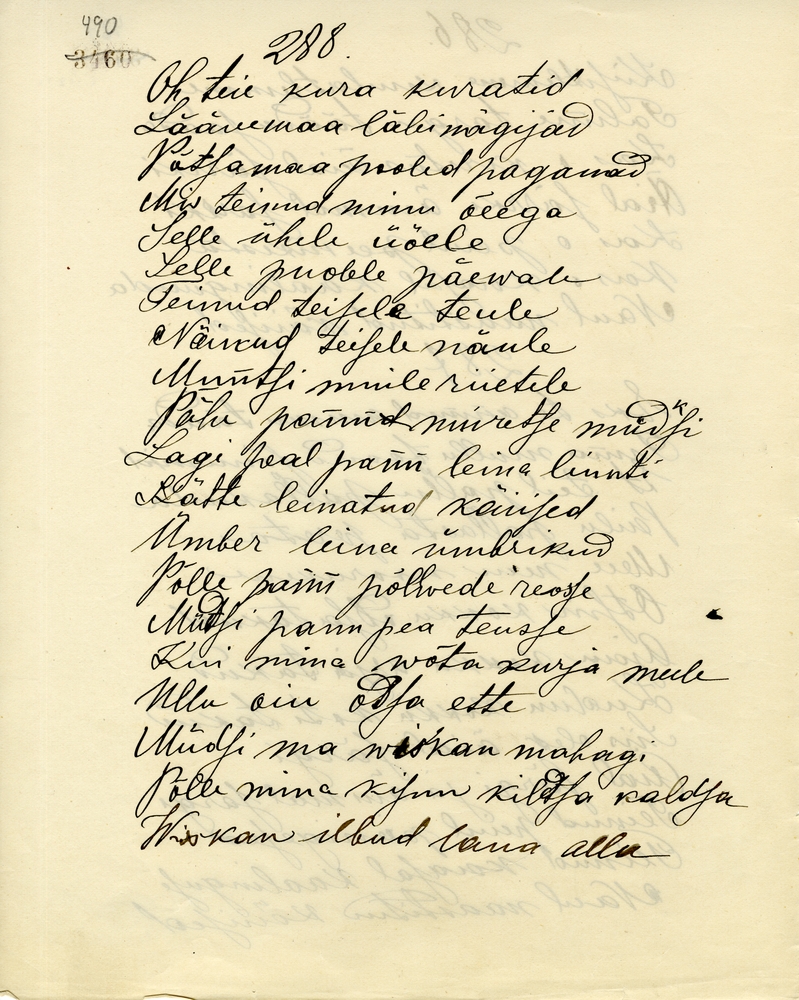 490
3460
288.
Oh teie kura kuratid
Läänemaa läbinägijad
Põtsamaa pooled paganad
Mis teinud minu õeega
Selle ühele üöele
Selle puoble päewale
Teinud teisele teule
Näinud teisele näule
Muutsi muile riietele
Põlu pannud miretse müdsi
Lagi peal pann leina linnti
Kätte leinatud käiised
Ümber leina ümbrikud
Põlle pann põllwede reosse
Müdsi pann pea teusse
Kui mina wõta kurja meele
Ullu oin odsa ette
Müdsi ma wiskan mahagi
Põlle mina kisun kildsa kaldsa
Wiskan ilbud laua alla